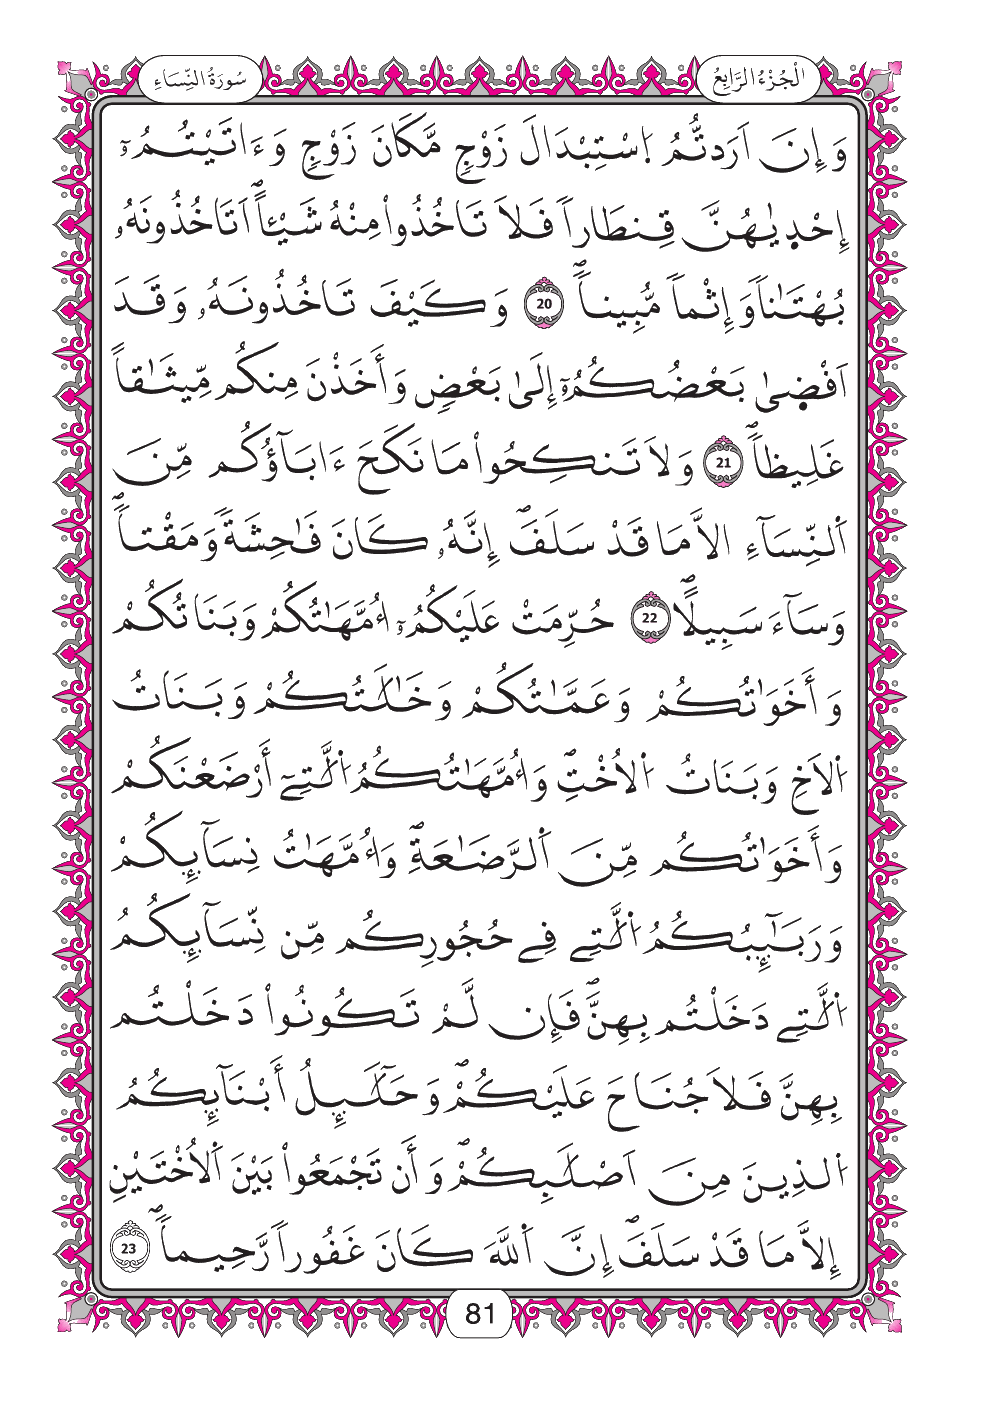 الْجُزْءُ الرَّابِعُ
سُورَةُ النِّسَاءِ
وَإِنَ اَرَدتُّمُ اُ۪سْتِبْدَالَ زَوْجٖ مَّكَانَ زَوْجٖ وَءَاتَيْتُمُۥٓ
إِحْد۪يٰهُنَّ قِنطَاراٗ فَلَا تَاخُذُواْ مِنْهُ شَيْـٔاًۖ اَتَاخُذُونَهُۥ
بُهْتَٰناٗ وَإِثْماٗ مُّبِيناٗۖ 20 وَكَيْفَ تَاخُذُونَهُۥ وَقَدَ
اَفْض۪ىٰ بَعْضُكُمُۥٓ إِلَىٰ بَعْضٖ وَأَخَذْنَ مِنكُم مِّيثَٰقاً
غَلِيظاٗۖ 21 وَلَا تَنكِحُواْ مَا نَكَحَ ءَابَآؤُكُم مِّنَ
اَ۬لنِّسَآءِ الَّا مَا قَدْ سَلَفَۖ إِنَّهُۥ كَانَ فَٰحِشَةٗ وَمَقْتاٗۖ
وَسَآءَ سَبِيلاًۖ 22 حُرِّمَتْ عَلَيْكُمُۥٓ أُمَّهَٰتُكُمْ وَبَنَاتُكُمْ
وَأَخَوَٰتُكُمْ وَعَمَّٰتُكُمْ وَخَٰلَٰتُكُمْ وَبَنَاتُ
اُ۬لَاخِ وَبَنَاتُ اُ۬لُاخْتِۖ وَأُمَّهَٰتُكُمُ اُ۬لَّٰتِےٓ أَرْضَعْنَكُمْ
وَأَخَوَٰتُكُم مِّنَ اَ۬لرَّضَٰعَةِۖ وَأُمَّهَٰتُ نِسَآئِكُمْ
وَرَبَٰٓئِبُكُمُ اُ۬لَّٰتِے فِے حُجُورِكُم مِّن نِّسَآئِكُمُ
اُ۬لَّٰتِے دَخَلْتُم بِهِنَّۖ فَإِن لَّمْ تَكُونُواْ دَخَلْتُم
بِهِنَّ فَلَا جُنَاحَ عَلَيْكُمْۖ وَحَلَٰٓئِلُ أَبْنَآئِكُمُ
اُ۬لذِينَ مِنَ اَصْلَٰبِكُمْۖ وَأَن تَجْمَعُواْ بَيْنَ اَ۬لُاخْتَيْنِ
إِلَّا مَا قَدْ سَلَفَۖ إِنَّ اَ۬للَّهَ كَانَ غَفُوراٗ رَّحِيماٗۖ 23
81